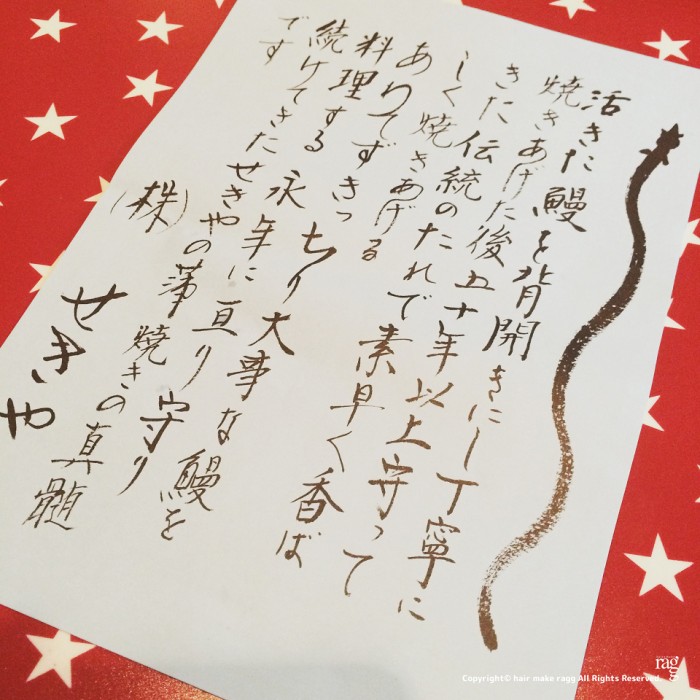 活きた鰻を背開きにし丁寧に
焼きあげた後五十年以上守って
きた伝統のたれで素早く香ば
しく焼きあげる
ありてずきっちり大事な鰻を
料理する永年に亘り守り
続けてきたせきやの蒲焼きの真髄
です
(株)せきや
ragg
Copyright© hair make ragg All Rights Reserved.